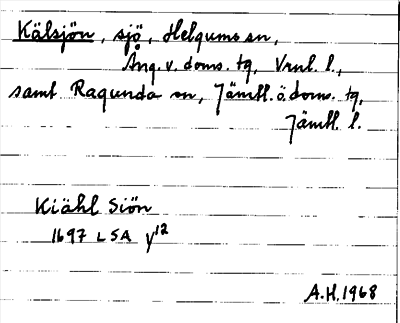 Kälsjön, sjö, Helgums sn,
Ång. v. doms. tg, Vrnl. l.,
samt Ragunda sn, Jämtl. ö. doms. tg,
Jämtl. l.
Kiähl Siön
1697 LSA Y12
A.H. 1968